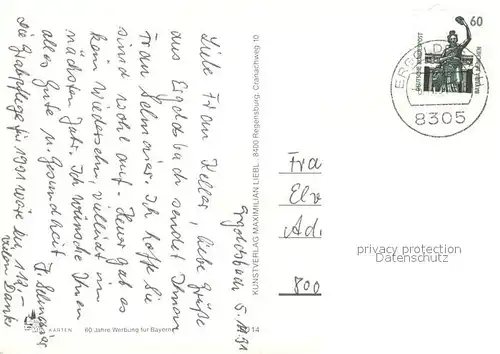 Ergoldsbach 5.11.91
Liebe Frau Keller, liebe Grüße
aus Ergoldsbach sendet Ihnen
Frau Selmaier. Ich hoffe Sie
sind wohl auf. Heuer gab es
kein Wiedersehn, vielleicht im
nächsten Jahr. Ich wünsche Ihnen
alles Gute u. Gesundheit
F. Selmaier
Die Grabpflege für 1991 wäre DM 119,-
vielen Dank
KUNSTVERLAG MAXIMILIAN LIEBL · 8400 Regensburg, Cranachweg 10
KARTEN
60 Jahre Werbung für Bayern
14
60
DEUTSCHE BUNDESPOST
8305
Fra
Elv
Ad.
800
privacy protection
Datenschutz